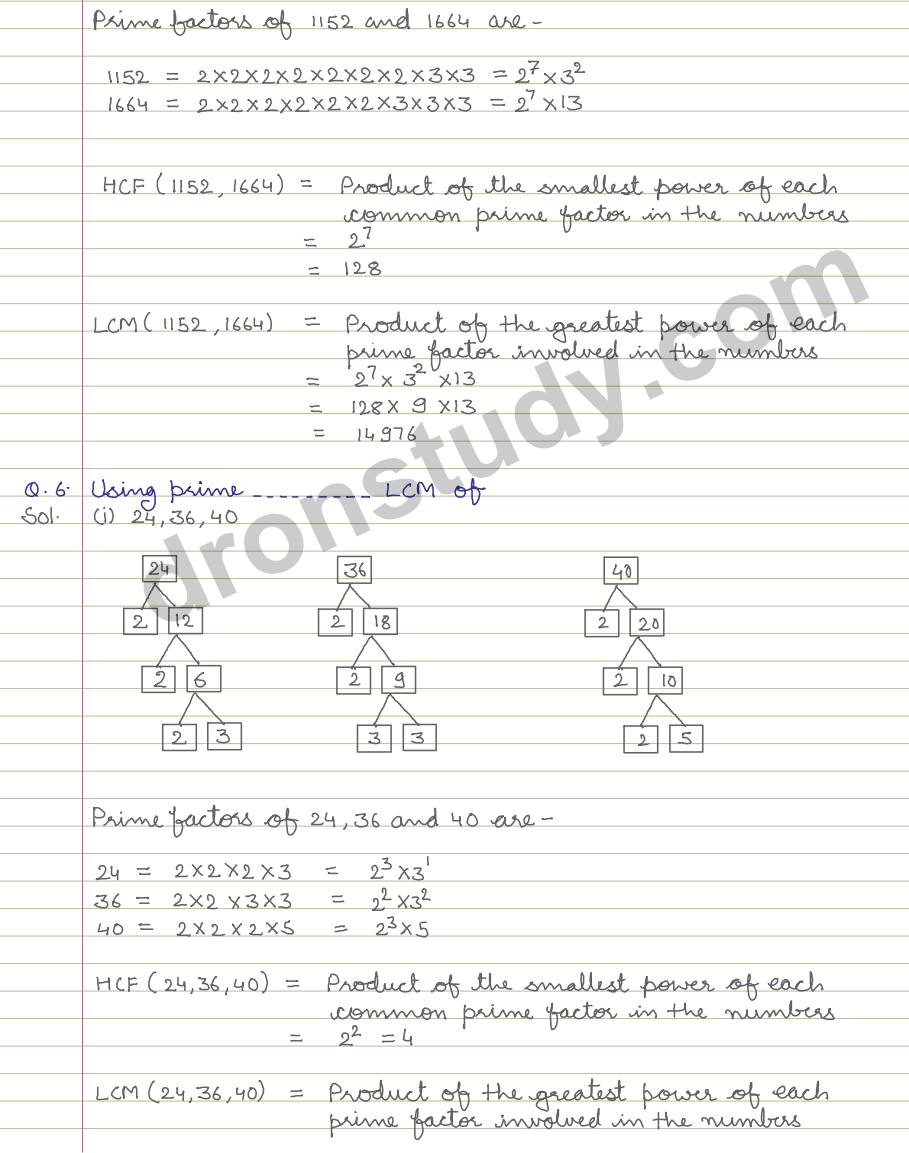 Prime factors of 1152 and 1664 are -
1152 = 2×2×2×2×2×2×2×3×3 = 2⁷×3²
1664 = 2×2×2×2×2×2×3×3×3 = 2⁷×13
HCF (1152, 1664) = Product of the smallest power of each
common prime factor in the numbers
= 2⁷
= 128
LCM (1152, 1664) = Product of the greatest power of each
prime factor involved in the numbers
= 2⁷ × 3² × 13
= 128 × 9 × 13
= 14976
Q.6. Using prime ---------- LCM of
Sol. (i) 24, 36, 40
24 36 40
2 12 2 18 2 20
2 6 2 9 2 10
2 3 3 3 2 5
Prime factors of 24, 36 and 40 are -
24 = 2×2×2×3 = 2³×3¹
36 = 2×2×3×3 = 2²×3²
40 = 2×2×2×5 = 2³×5
HCF (24,36,40) = Product of the smallest power of each
common prime factor in the numbers
= 2² = 4
LCM (24,36,40) = Product of the greatest power of each
prime factor involved in the numbers
dronstudy.com